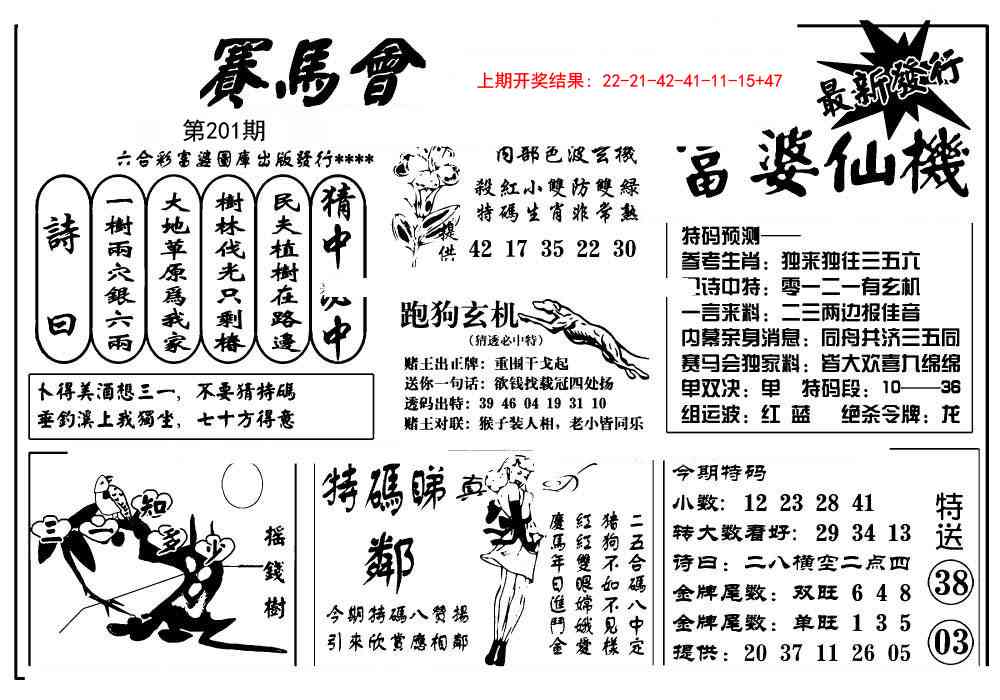 賽馬會
第201期
六合彩富婆圖庫出版發行****
上期开奖结果：22-21-42-41-11-15+47
最新發行
富婆仙機
詩曰
一樹兩穴銀六兩
大地草原爲我家
樹林伐光只剩樁
民夫植樹在路邊
猜中
中
卜得美酒想三一，不要猜特碼
垂釣溪上我獨坐，七十方得意
内部色波玄機
殺紅小雙防雙綠
特碼生肖非常熟
提供
42 17 35 22 30
跑狗玄机
(猜透必中特)
赌王出正牌：重围干戈起
送你一句话：欲钱找载冠四处扬
透码出特：39 46 04 19 31 10
赌王对联：猴子装人相，老小皆同乐
特码预测——
参考生肖：独来独往三五六
诗中特：零一二一有玄机
一言来料：二三两边报佳音
内幕亲身消息：同舟共济三五同
赛马会独家料：皆大欢喜九绵绵
单双决：单 特码段：10——36
组运波：红 蓝 绝杀令牌：龙
三一知多少
摇錢樹
特碼睇真
鄰
今期特碼八赞揚
引來欣賞應相鄰
二五合碼八中定
豬狗不如不見樣
紅紅雙眼嫦娥愛
慶馬年日進鬥金
今期特码
小数：12 23 28 41
转大数看好：29 34 13
诗曰：二八横空二点四
金牌尾数：双旺 6 4 8
金牌尾数：单旺 1 3 5
提供：20 37 11 26 05
特送
38
03